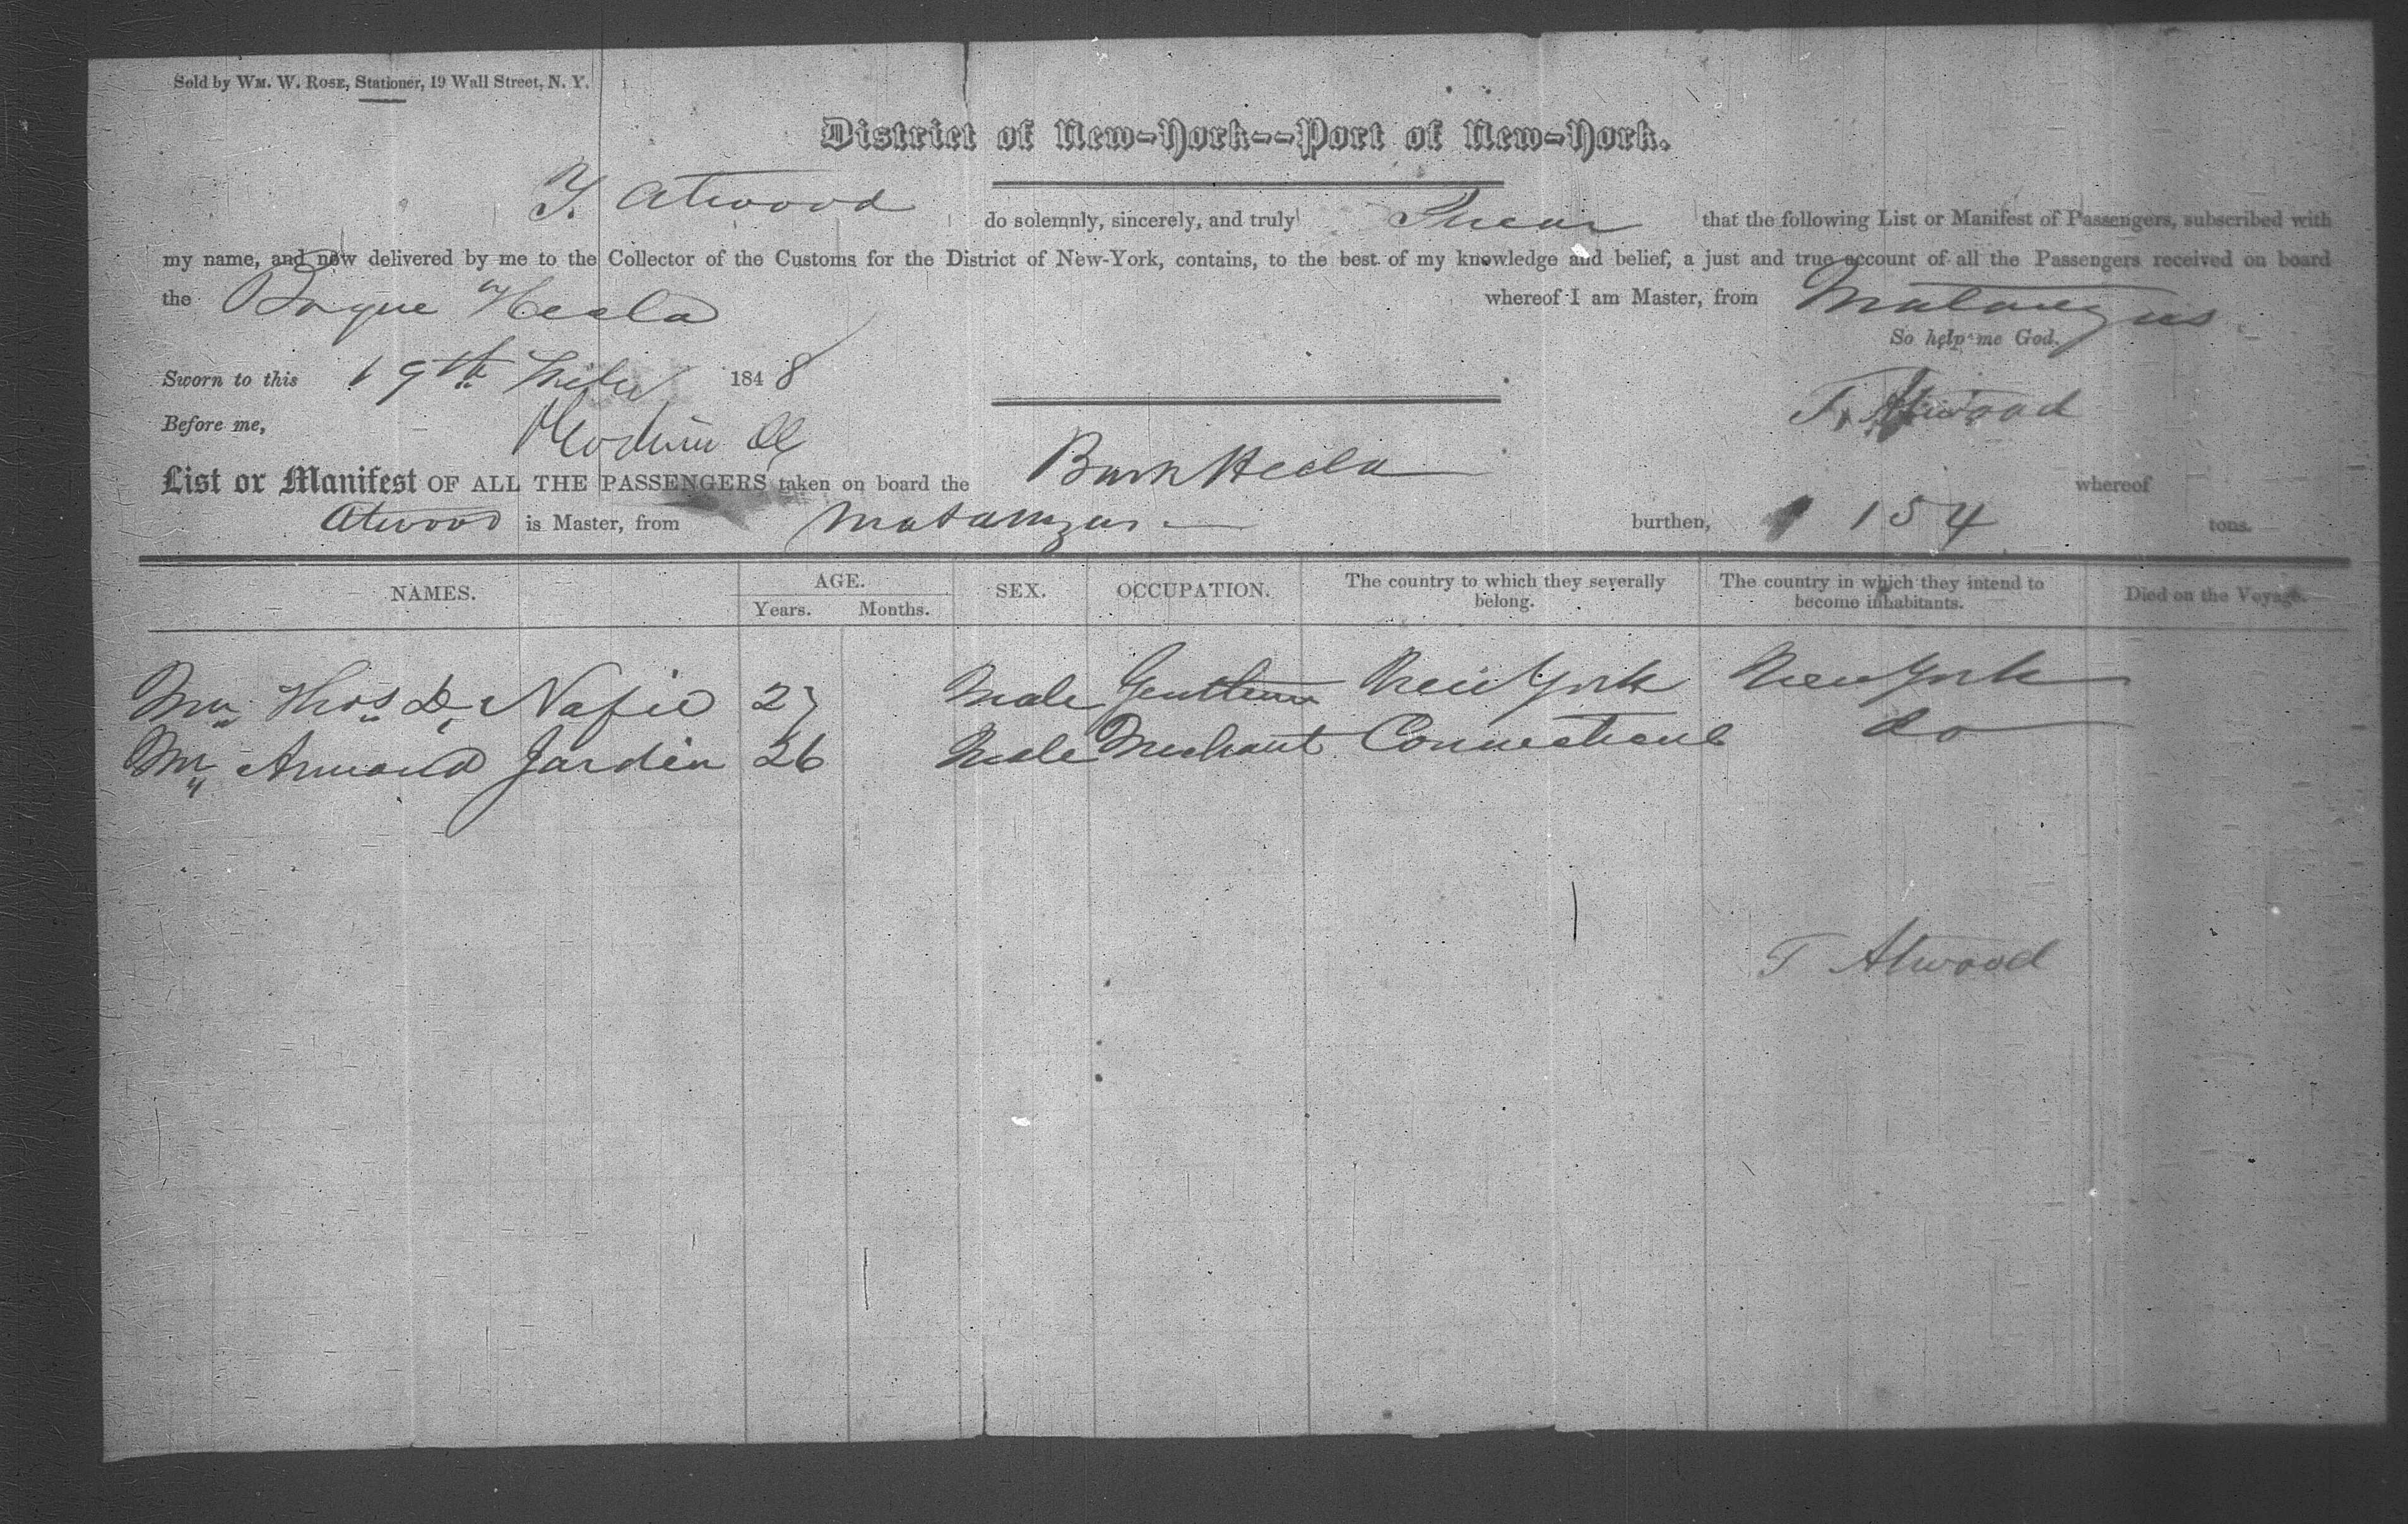 Sold by WM. W. ROSE, Stationer, 19 Wall Street, N. Y.
District of New-York--Port of New-York.
T. Atwood do solemnly, sincerely, and truly Swear that the following List or Manifest of Passengers, subscribed with
my name, and now delivered by me to the Collector of the Customs for the District of New-York, contains, to the best of my knowledge and belief, a just and true account of all the Passengers received on board
the Barque Hecla whereof I am Master, from Matanzas
So help me God.
Sworn to this 19th 1848
T. Atwood
Before me,
List or Manifest OF ALL THE PASSENGERS taken on board the Bark Hecla whereof
Atwood is Master, from Matanzas burthen, 154 tons.
NAMES. AGE. Years. Months. SEX. OCCUPATION. The country to which they severally belong. The country in which they intend to become inhabitants. Died on the Voyage.
Mr Thos D. Nafie 27 Male Gentleman New York New York
Mr Armand Jardin 26 Male Merchant Connecticut do
T Atwood